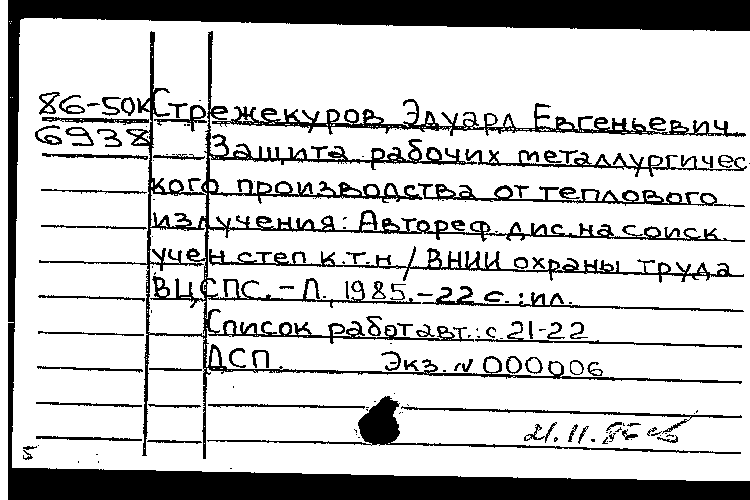 86-50к Стрежекуров, Эдуард Евгеньевич
6938 Защита рабочих металлургичес-
кого производства от теплового
излучения: Автореф. дис. на соиск.
учен. степ. к.т.н. / ВНИИ охраны труда
ВЦСПС. - Л., 1985. - 22 с.: ил.
Список работ авт.: с 21-22
ДСП. Экз. N 000006
21.11.86